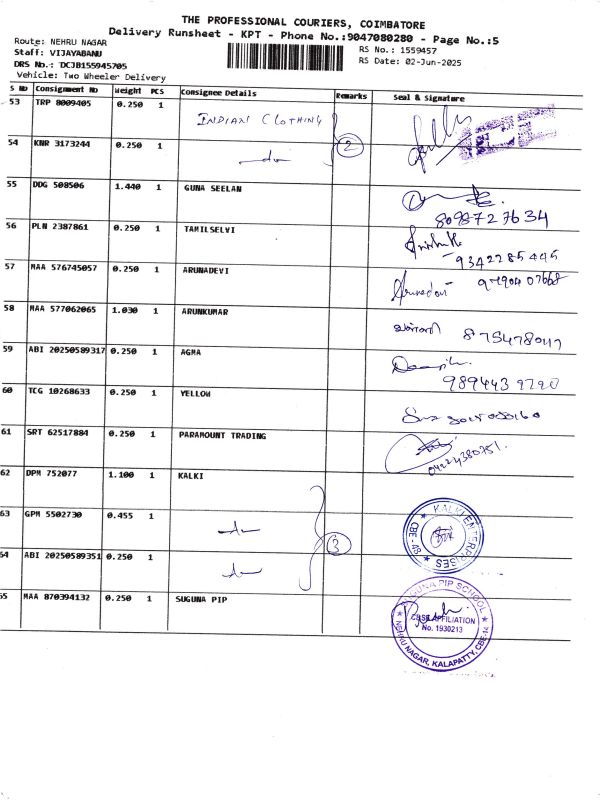 THE PROFESSIONAL COURIERS, COIMBATORE
Delivery Runsheet - KPT - Phone No.:9047080280 - Page No.:5
Route: NEHRU NAGAR
RS No.: 1559457
Staff: VIJAYABANU
RS Date: 02-Jun-2025
DRS No.: DCJB155945705
Vehicle: Two Wheeler Delivery
S No Consignment No Weight PCS Consignee Details Remarks Seal & Signature
53 TRP 8009405 0.250 1 INDIAN CLOTHING
54 KNR 3173244 0.250 1 -do- 2
55 DDG 508506 1.440 1 GUNA SEELAN
8098727634
56 PLN 2387861 0.250 1 TAMILSELVI
9342285445
57 MAA 576745057 0.250 1 ARUNADEVI
Arunadevi
58 MAA 577062065 1.030 1 ARUNKUMAR
59 ABI 20250589317 0.250 1 AGMA
60 TCG 10268633 0.250 1 YELLOW
61 SRT 62517884 0.250 1 PARAMOUNT TRADING
04224380751
62 DPM 752077 1.100 1 KALKI
63 GPM 5502730 0.455 1 -do- 3
KALKI ENTERPRISES
CBE-48
64 ABI 20250589351 0.250 1 -do-
65 MAA 870394132 0.250 1 SUGUNA PIP
SUGUNA PIP SCHOOL
CBSE AFFILIATION
No. 1930213
NEHRU NAGAR, KALAPATTY, CBE-14